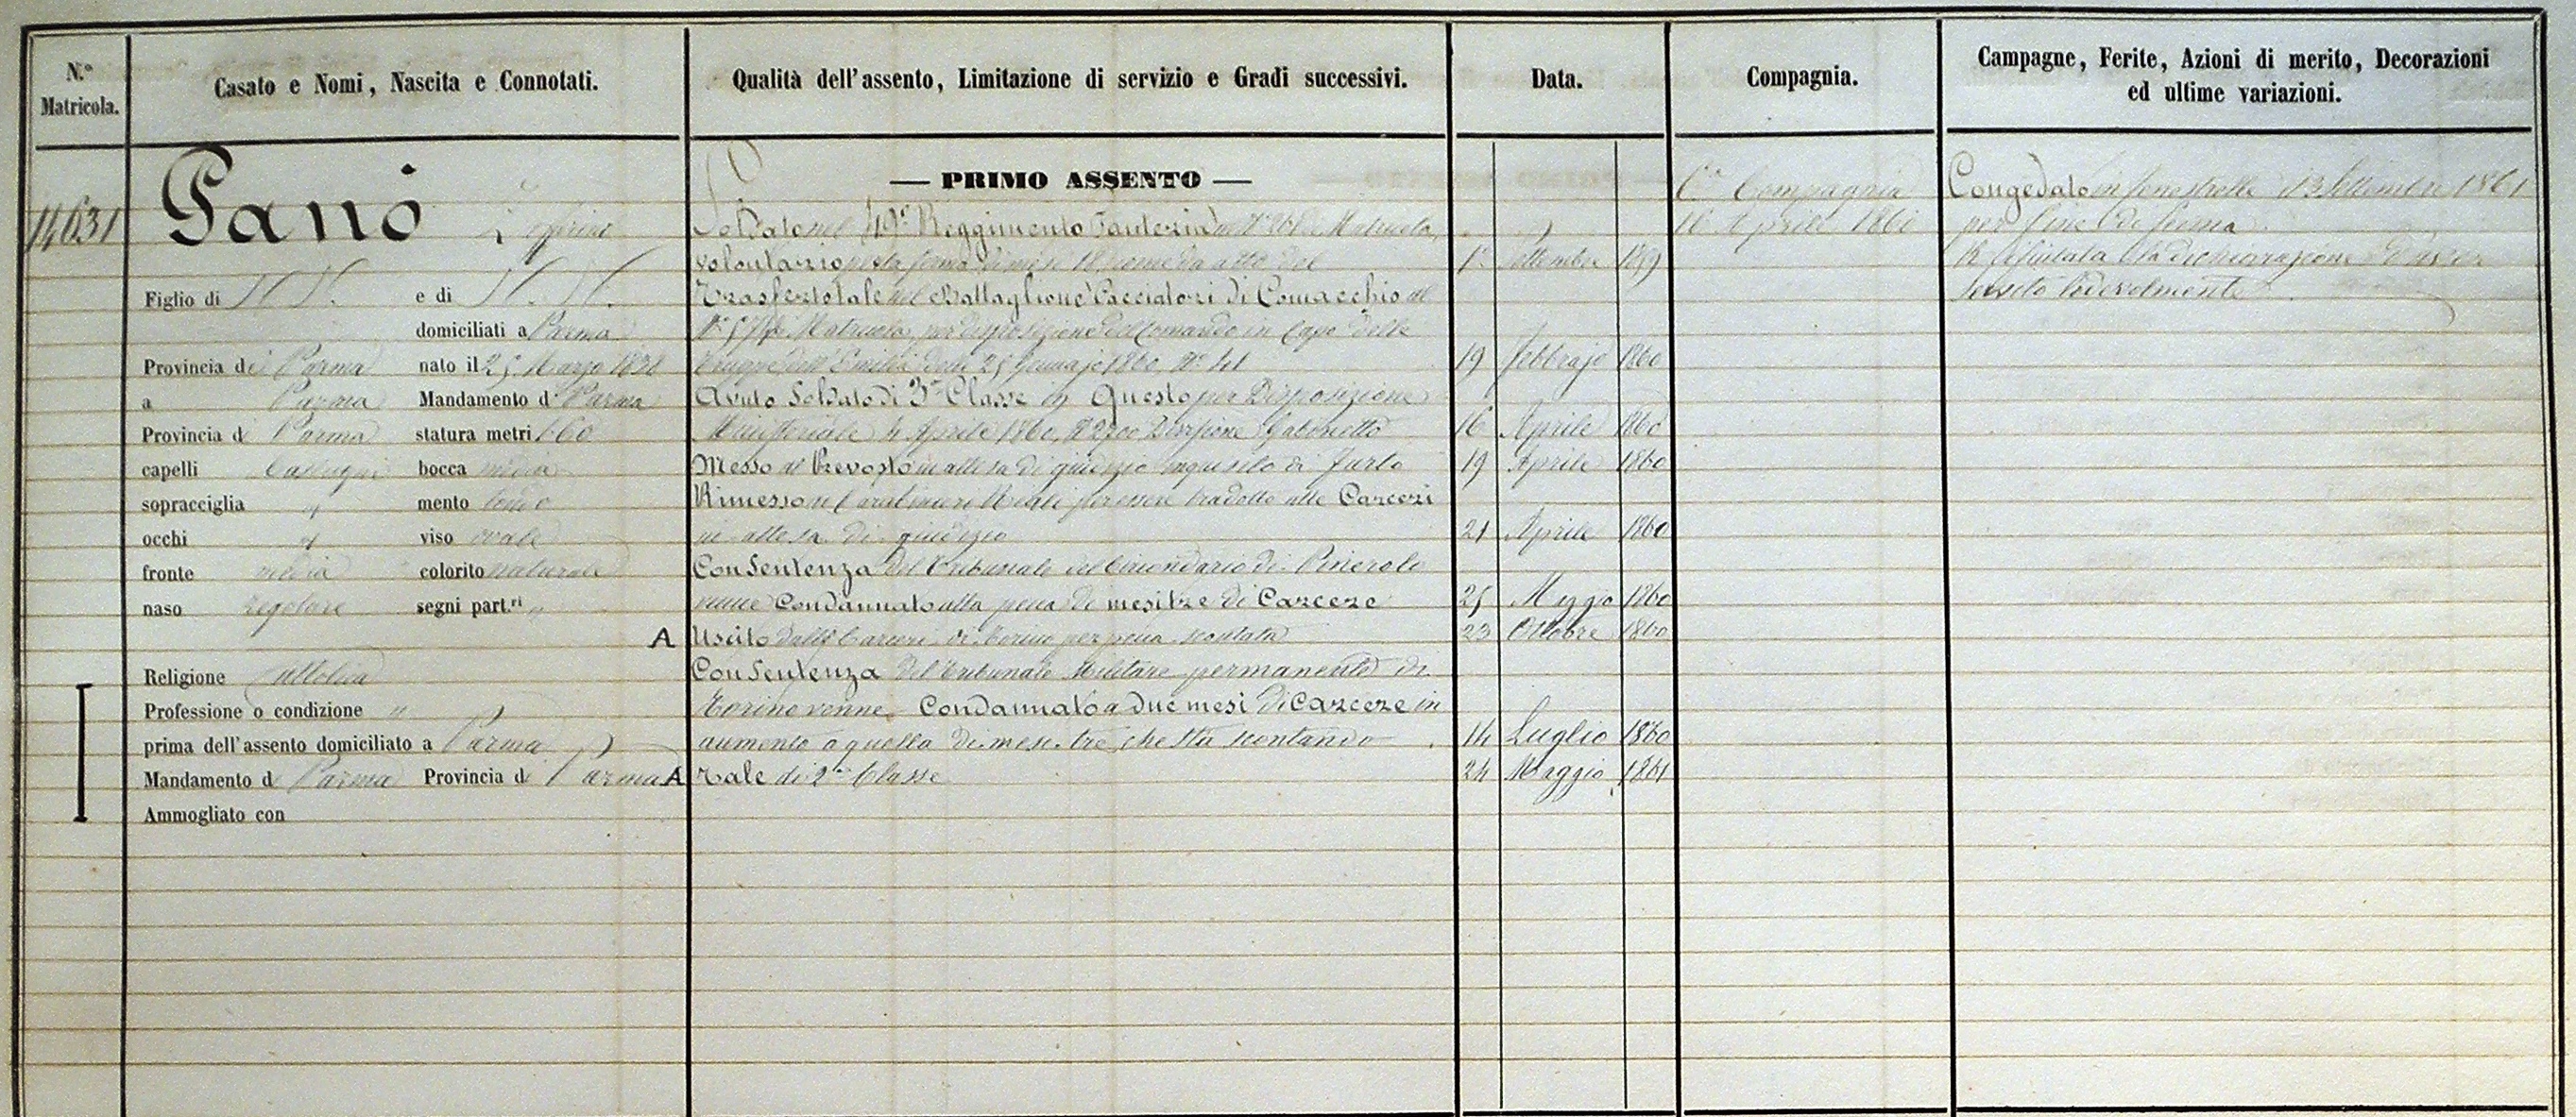 N.° Matricola.
Casato e Nomi, Nascita e Connotati.
Qualità dell'assento, Limitazione di servizio e Gradi successivi.
Data.
Compagnia.
Campagne, Ferite, Azioni di merito, Decorazioni
ed ultime variazioni.
14631
Panò Zeffirino
Figlio di N. N. e di N. N.
domiciliati a Parma
Provincia di Parma nato il 25 Marzo 1838
a Parma Mandamento di Parma
Provincia di Parma statura metri 1.60
capelli Castagni bocca media
sopracciglia " mento tondo
occhi " viso ovale
fronte media colorito naturale
naso regolare segni part.ri "
Religione Cattolica
Professione o condizione "
prima dell'assento domiciliato a Parma
Mandamento di Parma Provincia di Parma
Ammogliato con
— PRIMO ASSENTO —
Soldato nel 49° Reggimento Fanteria al N° di Matricola,
volontario per la ferma di mesi 18 come da atto del 1° Settembre 1859
Trasferto tale nel Battaglione Cacciatori di Comacchio al
N° di Matricola, per disposizione del Comando in Capo delle
truppe dell'Emilia delli 25 Gennajo 1860, N° 41 19 Febbrajo 1860
Avuto Soldato di 3a Classe in Questo per Disposizione
Ministeriale 4 Aprile 1860, N° 2700 Divisione Gabinetto 16 Aprile 1860
Messo al Prevosto in attesa di giudizio inquisito di furto 19 Aprile 1860
Rimesso ai Carabinieri Reali per essere tradotto alle Carceri
in attesa di giudizio 21 Aprile 1860
Con Sentenza del Tribunale del Circondario di Pinerolo
venne Condannato alla pena di mesi tre di Carcere 25 Maggio 1860
A Uscito dalle Carceri di Torino per pena scontata 23 Ottobre 1860
Con Sentenza del Tribunale Militare permanente di
Torino venne Condannato a due mesi di Carcere in
aumento a quella di mesi tre che sta scontando 14 Luglio 1860
A Tale di 2a Classe 24 Maggio 1861
Compagnia
16 Aprile 1860
Congedato in Fenestrelle 13 Settembre 1861
per fine di ferma
È rifiutata la dichiarazione d'aver
servito lodevolmente